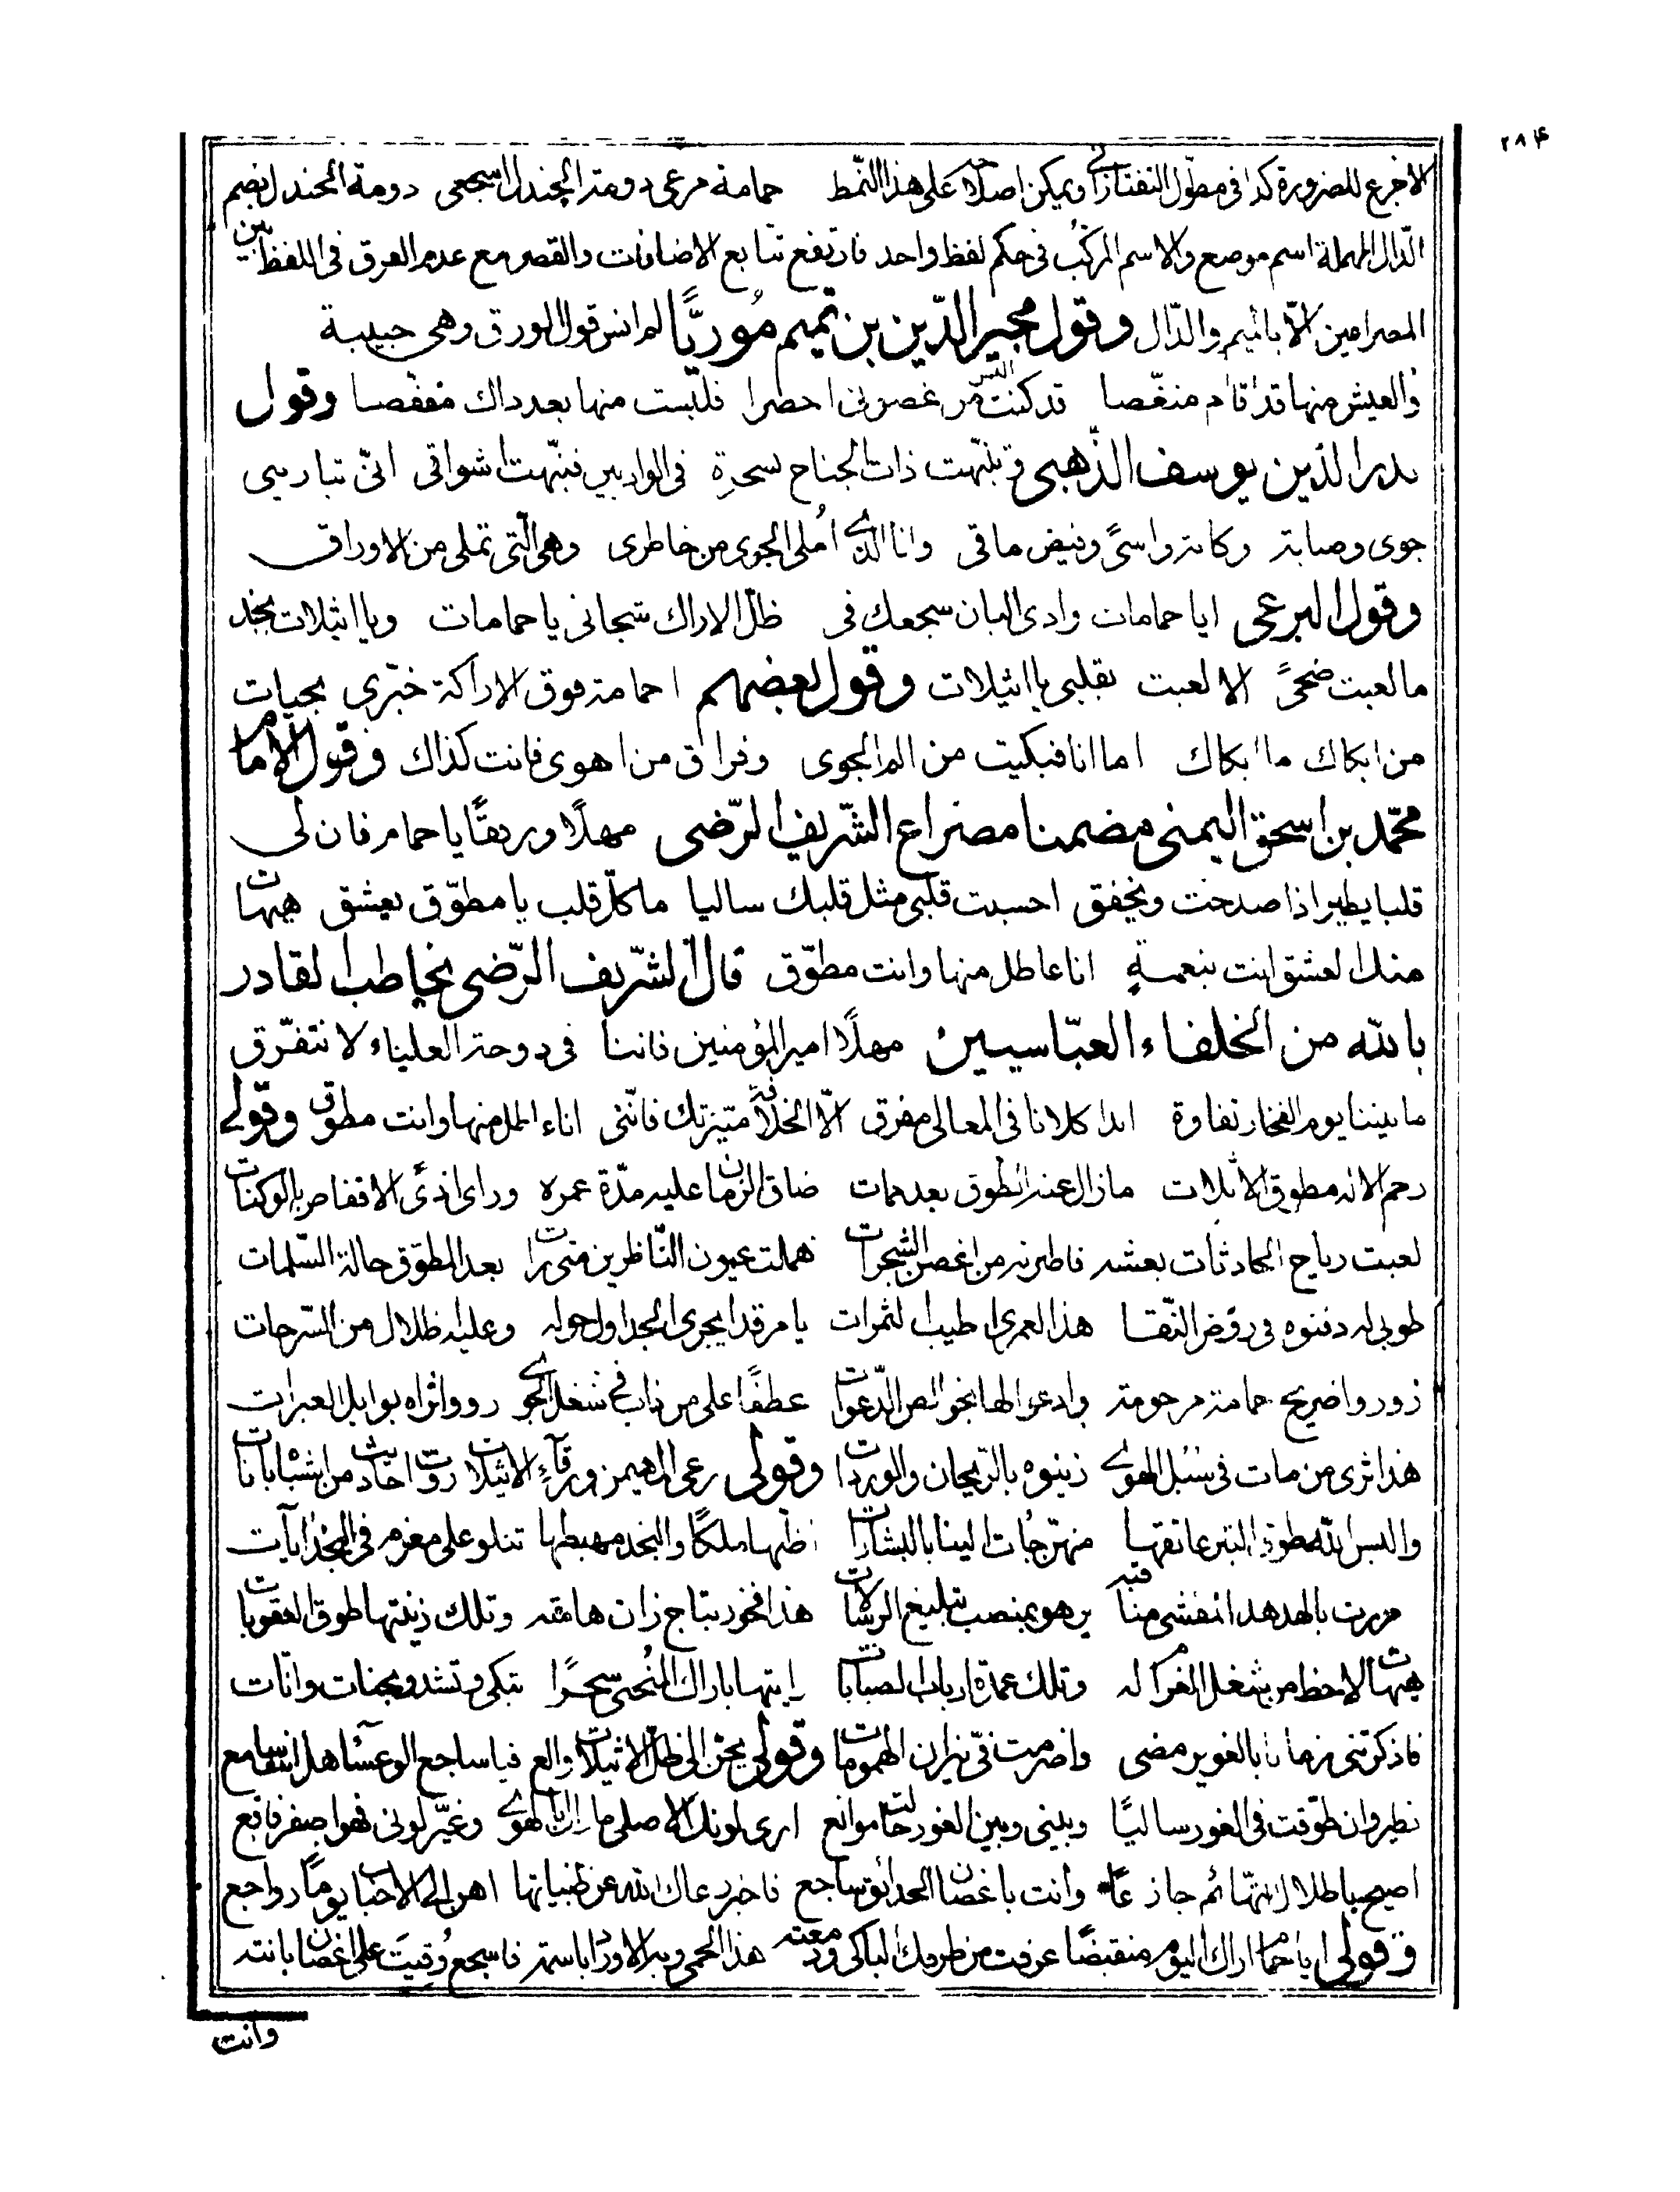 ٢٨۴
الاجرع للضرورة كذا في مطول التفتازاني ويمكن اصلاحه على هذا النمط حمامة مرعى دومة الجندل اسجعى دومة الجندل بضم
الدال المهملة اسم موضع والاسم المركب في حكم لفظ واحد فارتفع تتابع الاضافات والقصر مع عدم الفرق في اللفظ بين
المصراعين الا بالميم والدال وقول مجير الدين بن تميم موريًا لم انس قول الورق وهى حبيسة
والعيش منها قد اقام منغصا قد كنت البس من غصونى اخضرا فلبست منها بعد ذاك مقفصا وقول
بدر الدين يوسف الذهبى وتنبهت ذات الجناح بسحرة في الواديين فنبهت اشواقى انى تبارينى
جوى وصبابة وكابة واسىً وفيض ماقى وانا الذى اُملى الجوى من خاطرى وهى التى تملى من الاوراق
وقول البرعى ايا حمامات وادى البان سجعك في ظل الاراك شجانى يا حمامات ويا اثيلات نجد
ما لعبت ضحىً الا لعبت بقلبى يا اثيلات وقول بعضهم احمامة فوق الاراكة خبرى بحيات
من ابكاك ما ابكاك اما انا فبكيت من الم الجوى وفراق من اهوى فانت كذاك وقول الامام
محمد بن اسحق اليمنى مضمنا مصراع الشريف الرضى مهلًا ورفقًا يا حمام فان لى
قلبا يطير اذا صدحت ويخفق احسبت قلبى مثل قلبك ساليا ما كل قلب يا مطوق يعشق هيهات
منك العشق انت بنعمةٍ انا عاطل منها وانت مطوق قال الشريف الرضى يخاطب القادر
بالله من الخلفاء العباسيين مهلًا امير المؤمنين فاننا في دوحة العلياء لا نتفرق
ما بيننا يوم الفخار تفاوة ابدا كلانا في المعالى مفرق الّا الخلافة ميزتك فاننى انا عاطل منها وانت مطوق وقولى
رحم الاله مطوق الاثلات ما زال عند الطوق بعد ممات ضاق الزمان عليه مدة عمره وراى اذى الاقفاص بالوكنات
لعبت رياح الحادثات بعشه فاطرنه من اغصن الشجرات هملت عيون الناظرين متى رات بعد المطوق حالة السلمات
طوبى له دفنوه في روض النقا هذا لعمرى اطيب الثمرات يا مرقدا يجرى الجداول حوله وعليه ظلال من السرحات
زوروا ضريح حمامة مرحومة وادعوا لها بخوالص الدعوات عطفًا على من ذاب في شغل الجوى رووا ثراه بوابل العبرات
هذا ثرى من مات في سبل الهوى زينوه بالريحان والوردات وقولى رعى المهيمن ورقاء الاثيلات روت احاديث من اشباباناتِ
والبس الله طوق التبر عاتقها منه ترجات الينا بالبشارات اظنها ملكًا والنجد مهبطها تتلو على مغرم في النجد ايات
مررت بالهدهد انفشى مناقبه يرهو بمنصب تبليغ الرسالات هذا فخور بتاج زان هامته وتلك زينتها طوق العقوبات
هيهات لا حظ من شغل الغرام له وتلك عمدة ارباب الصبابات رايتها باراك المنحنى سحرًا تبكى وتشدو بحنات وانات
فاذكرتنى زمانا بالغوير مضى واضرمت فيّ نيران الهمومات وقولى يحن الى ظل الاثيلات والع فيا ساجع الوعساء هل انت سامع
نظير وان طوقت في الغور ساليًا وبينى وبين الغور حالت موانع ارى لونك الاصلى ما راب الهوى وغير لونى فهو اصفر فاقع
اصيح باطلال التهائم جازعًا وانت باغصان الحدائق ساجع فاخبر رعاك الله عن ظبياتها اهن الى الاحباب يومًا رواجع
وقولى ايا حمام اراك اليوم منقبضًا عرفت من طرفك الباكى ودمعته هذا الحمى وبه الاوراد باسمة فاسجع وُقيتَ على اغصان بانته
وانت